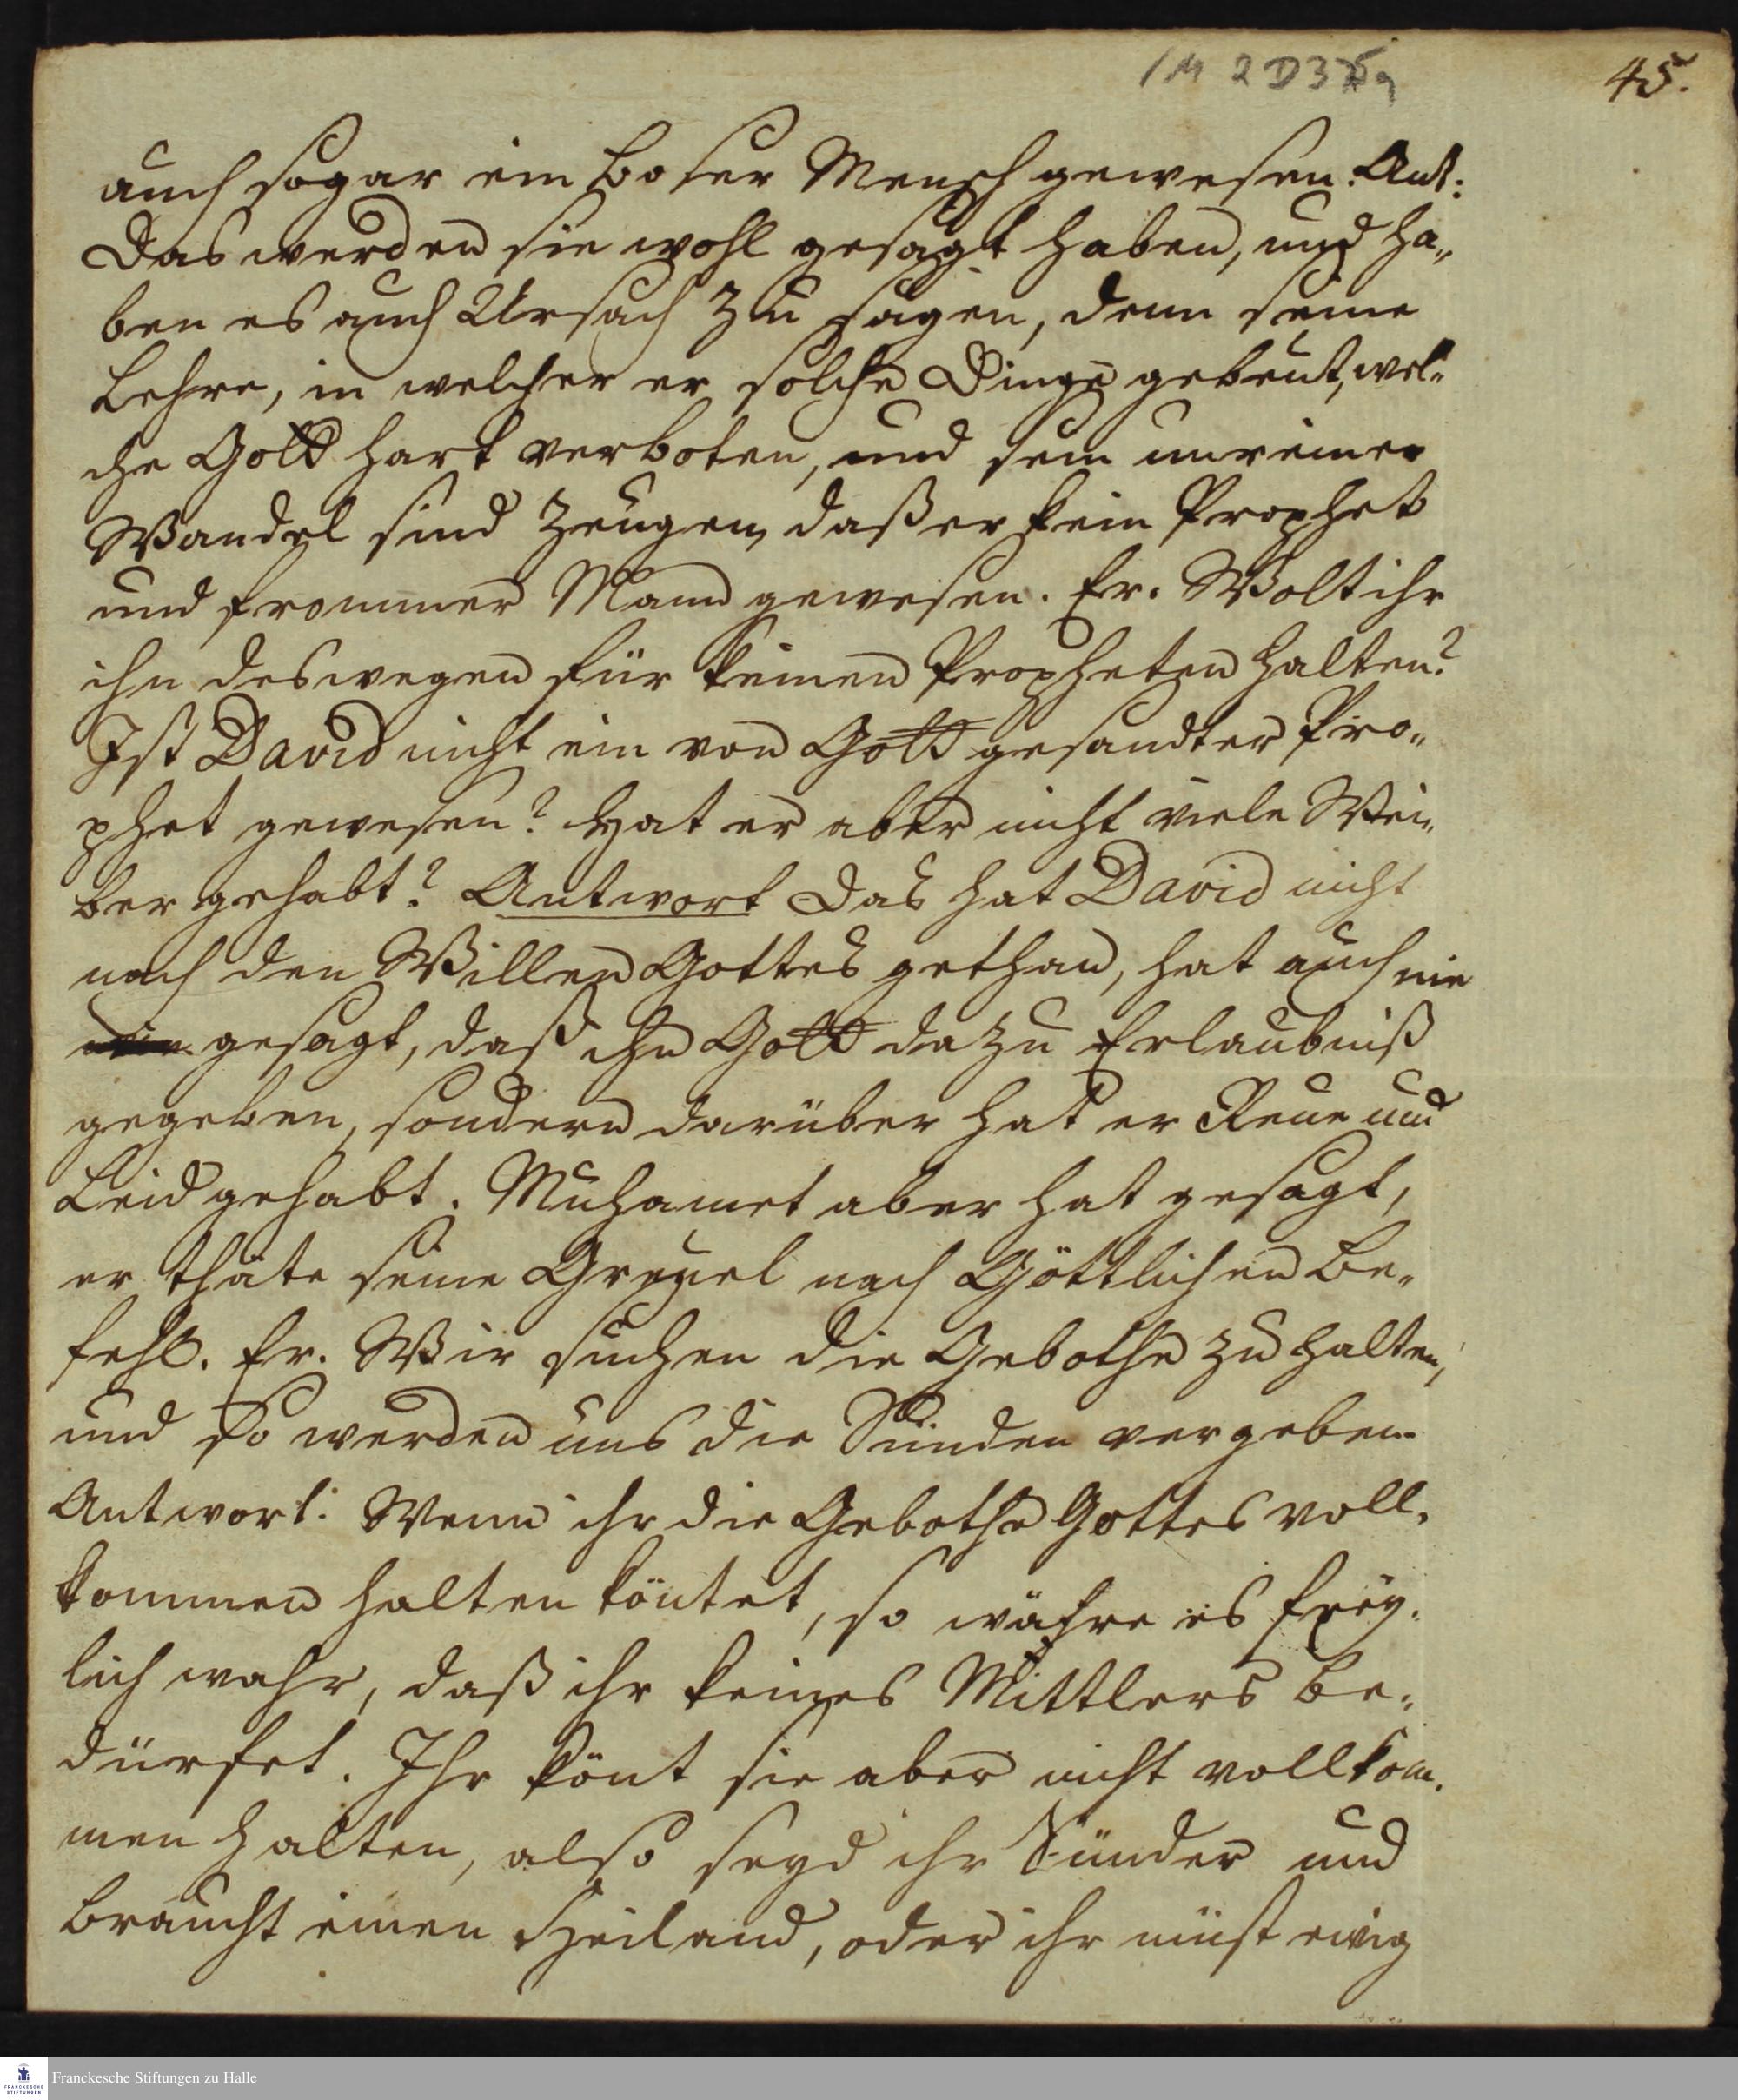 1M 2 D37a
45.
auch sogar ein böser Mensch gewesen. Ant:
Das werden sie wohl gesagt haben, und ha„
ben es auch Ursach zu sagen, denn seine
Lehre, in welcher er solche Dinge gebeut, wel„
che Gott hart verboten, und sein unreiner
Wandel sind Zeugen, daß er kein Prophet
und frommer Mann gewesen. Er. Wolt ihr
ihn deswegen für keinen Propheten halten?
Ist David nicht ein von Gott gesandter Pro„
phet gewesen? Hat er aber nicht viele Wei„
ber gehabt? Antwort Das hat David nicht
nach den Willen Gottes gethan, hat auch nie
gesagt, daß ihn Gott dazu Erlaubniß
gegeben, sondern darüber hat er Reue und
Leid gehabt. Muhamet aber hat gesagt,
er thäte seine Greuel nach Göttlichen Be„
fehl. Er. Wir suchen die Gebothe zu halten,
und so werden uns die Sünden vergeben.
Antwort: Wenn ihr die Gebothe Gottes voll„
kommen halten köntet, so währe es frey„
lich wahr, daß ihr keines Mittlers be„
dürfet. Ihr könt sie aber nicht vollkom„
men halten, also seyd ihr Sünder und
braucht einen Heiland, oder ihr müst ewig
Franckesche Stiftungen zu Halle
FRANCKESCHE
STIFTUNGEN